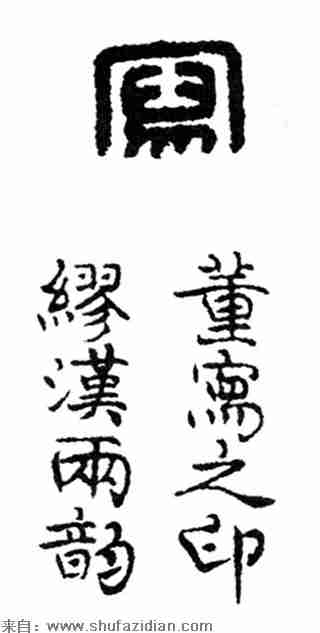 寫
董寫之印
繆漢兩韵
来自：www.shufazidian.com